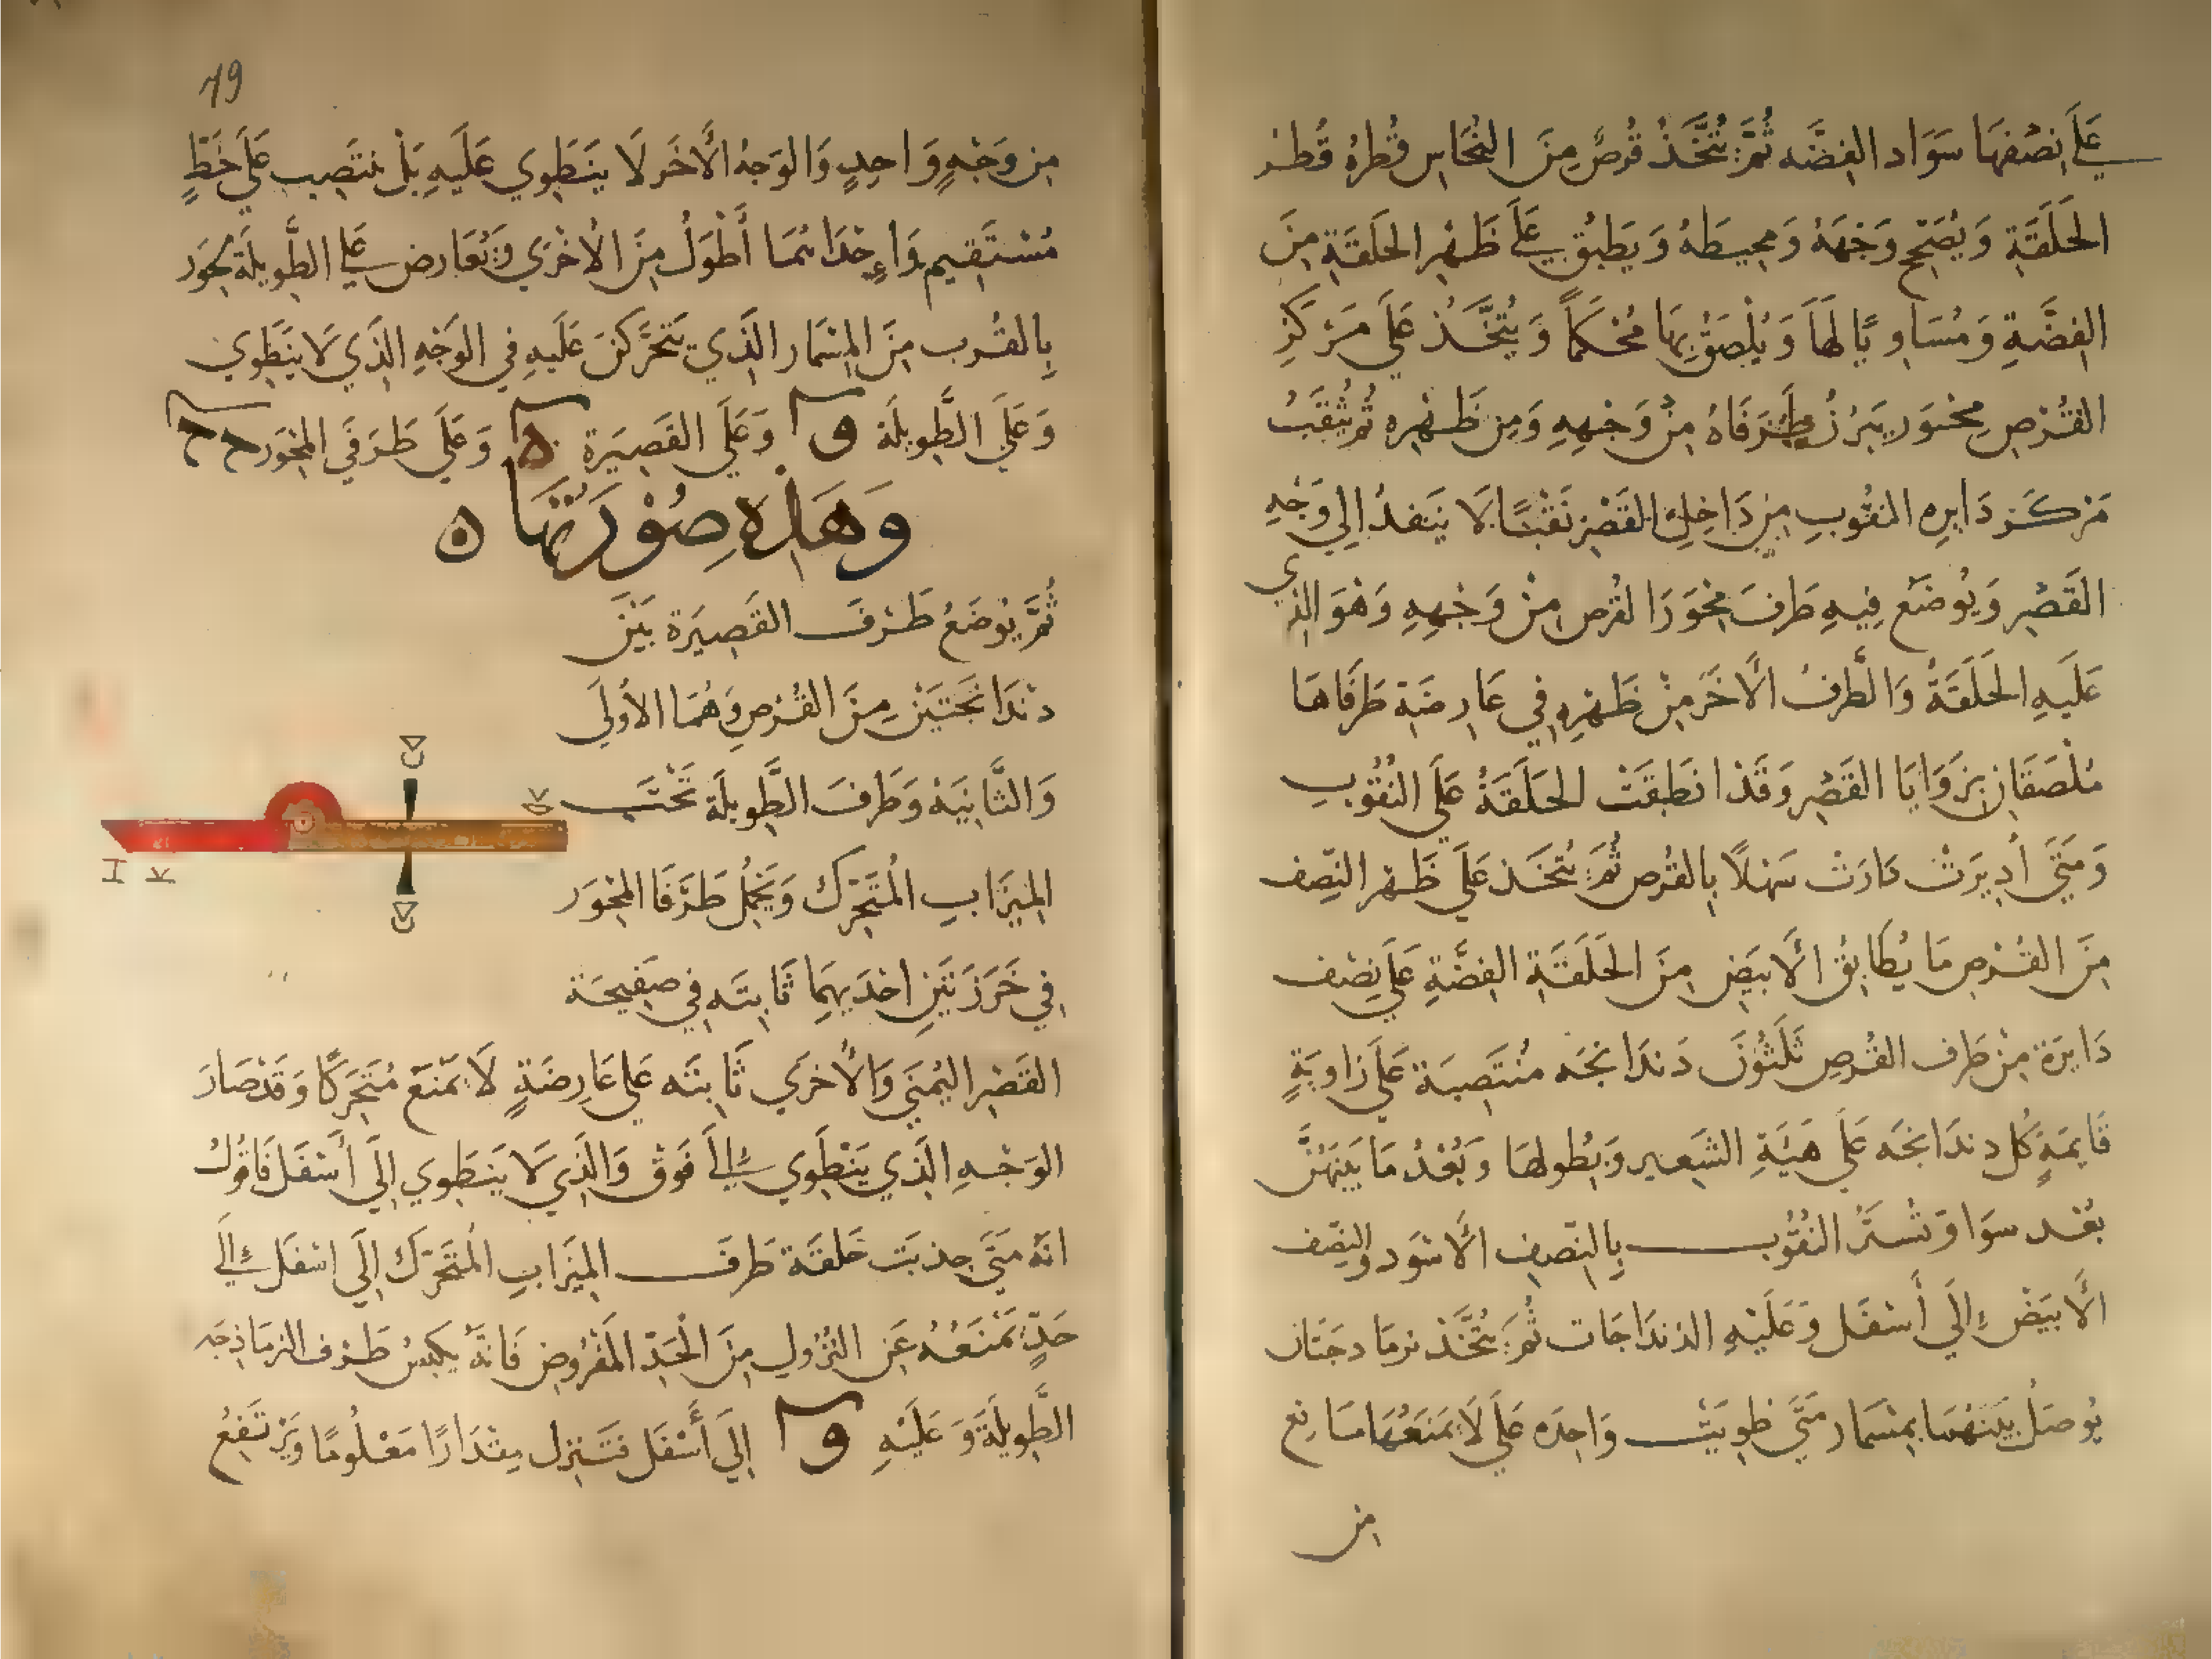 عَلَى نِصْفِهَا سَوَاد الفِضَّه ثُمَّ يُتَّخَذُ قُرصٌ مِنَ النُحَاس قُطرهُ قُطر
الحَلَقَةِ وَيُصَحّح وَجْهَهُ وَمحِيطَهُ وَيطبقُ عَلَى ظَهْرِ الحَلَقَةِ مِنَ
الفِضَّةِ وَمُسَاوِيًا لَهَا وَيُلْصَقُ بِهَا مُحْكَمًا وَيُتَّخَذ عَلَى مَرْكَزِ
القُرْصِ مِحْوَر يَبرُزُ طَرَفَاهُ مِنْ وَجْهِهِ وَمِن ظَهرِه ثُمَّ يُثقَبُ
مَرْكَز دَايرِه الثقُوبِ مِن دَاخِلِ القَصْرِ نَقْبًا لَا يَنفذُ اِلى وَجْهِ
القَصْرِ وَيُوضَع فِيهِ طَرفَ مِحْوَر القُرص مِنْ وَجْهِهِ وَهوَ الذي
عَلَيهِ الحَلَقَةُ وَالطَّرفُ الأَخَر مِنْ ظَهْرِهِ فِي عَارِضَة طَرَفَاهَا
مُلْصَقَان بِزَوَايَا القَصْر وَقَد انطَبَقَتْ الحَلَقَةُ عَلَى الثُقُوبِ
وَمَتَى أُدِيرَتْ دَارَتْ سَهْلًا بِالقُرص ثُمَّ يُتَّخَذ عَلَى ظَهْر النِصْف
مِنَ القُرْصِ مَا يُطَابِقُ الأَبيَض مِنَ الحَلَقَةِ الفِضَّةِ عَلَى نِصْف
دَايرَة مِنْ طَرف القُرصِ ثَلَثُونَ دَندَانجَه مُنتَصِبَة عَلَى زَاوِيَةٍ
قَايمَةٍ كُل دندَانجَه عَلَى هَيْئَةِ الشَعِير وَبطُولِهَا وَبُعْدُ مَا بَينَهُنَّ
بُعْد سَوَا وَتُستَرُ الثُقُوب بِالنِصْفِ الأَسْوَد وَالنِصْف
الأَبيَضْ إِلَى أَسْفَل وَعَلَيْهِ الدَندَاجَات ثُمَّ يُتَّخَذ نرمَاد جَتَان
يُوصلُ بَينَهُمَا بمِسْمَار مَتَى طوِيَتْ وَاحِدَه عَلَى لَا يَمنَعُهَا مَانِع
مِن
19
مِن وَجْهٍ وَاحِدٍ وَالوَجهُ الأَخَر لَا يَنطَوِي عَلَيهِ بَلْ مُنتَصِب عَلَى خَطٍّ
مُسْتَقِيمٍ وَإحْدَاهمَا أَطْوَلُ مِنَ الأُخْرَى وَتُعَارض عَلَى الطَّوِيلَة بمحوَر
بِالقُرب مِنَ المِسْمَار الذَي يَتَحَرَّكنَ عَلَيهِ فِي الوَجْهِ الذَي لَا يَنطَوِي
وَعَلَى الطَّوِيلَة و وَعَلَى القَصِيرَة ه وَعَلَى طَرَفَي المِحْوَر ح ح
وَهَذِه صُوْرَتهَا ه
ثُمَّ يُوضَعُ طَرَفَ القَصِيرَة بَيْنَ
دَندَانَجَتَيْن مِنَ القُرصِ وَهُمَا الأُولَى
وَالثَّانِيَة وَطَرفَ الطَّوِيلَة تَحْتَ
المِيزَابِ المُتَحَرِّك وَيُجْعَل طَرَفَا المِحْوَر
فِي خَرَزَتَيْنِ احْدَيهمَا ثَابتَه فِي صَفِيحَة
القَصْر اليُمْنَى وَالأُخرَى ثَابتَه عَلى عَارِضَةٍ لَا يَمنَع مُتَحَرِكًا وَقَد صَارَ
الوَجْهِ الذَي يَنْطَوِي إلَى فَوق وَالذَي لَا يَنطَوِي إلَى أَسْفَل فَاقُولُ
انَه مَتَى جذبَت حَلقَة طَرفَ المِيزَابِ المُتَحَرّك إلَى اسْفَل إلَى
حَدٍّ يَمْنَعُهُ عَن النُزُولِ مِنَ الْحَدِّ المَفْرُوض فَانَّهُ يَكبسُ طَرف النرمَاذجَه
الطَّوِيلَة وَعَلَيْهِ و إلَى أَسْفَل فتَنزِل مِقدَارًا مَعْلُومًا وَيَرتَفِعُ